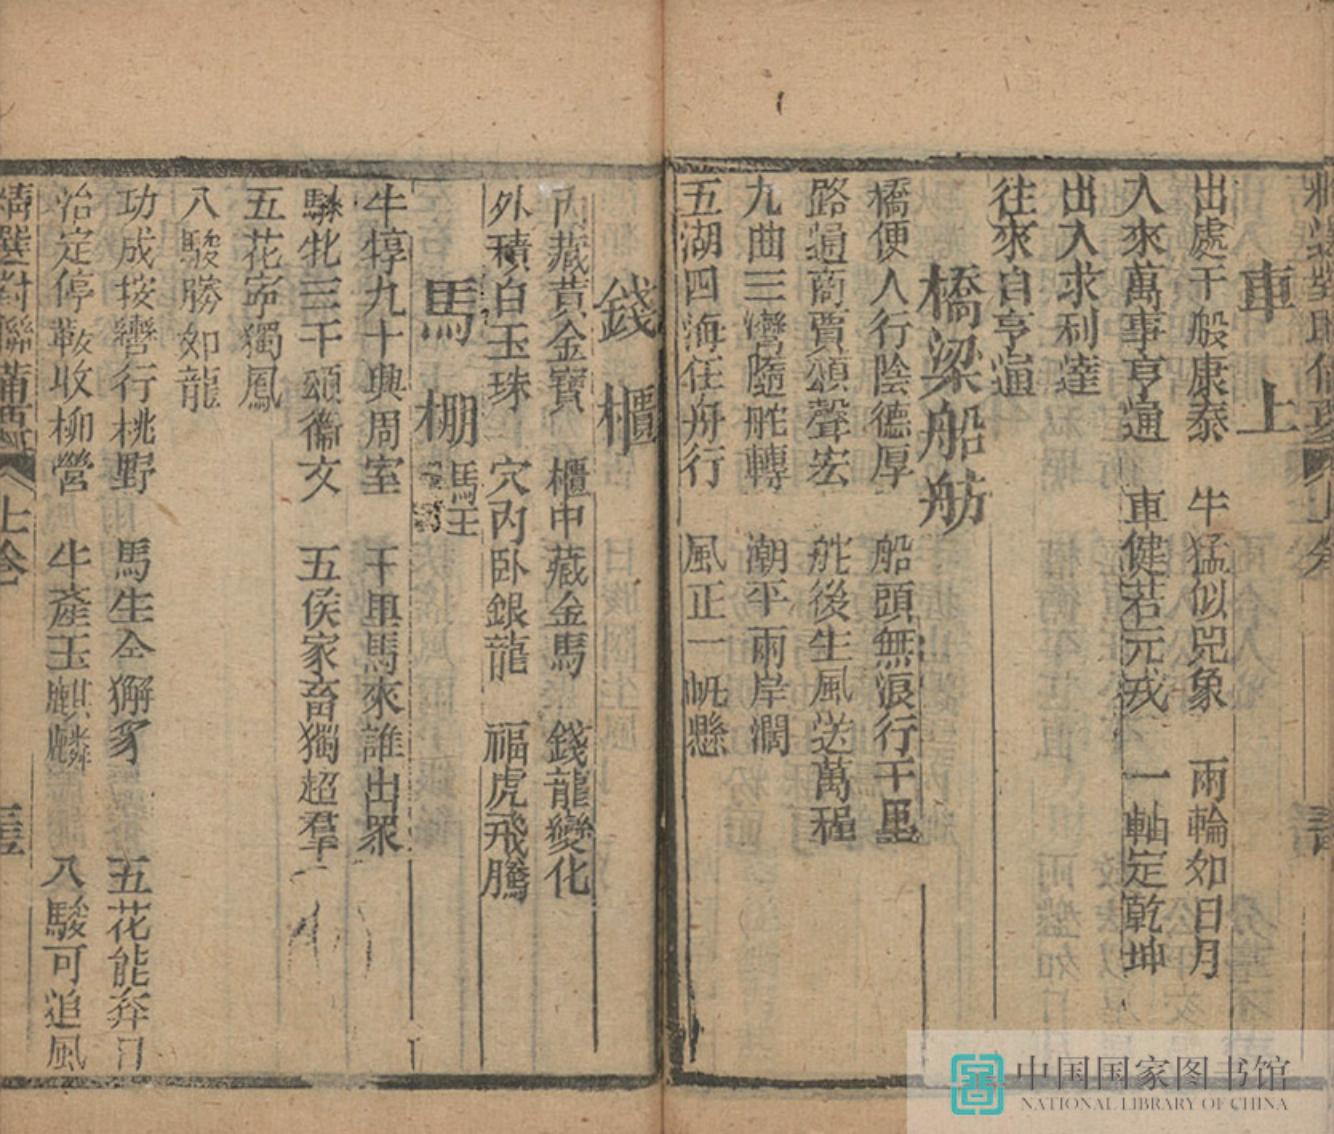 車上
出處千般康泰　牛猛似兕象　兩輪如日月
入來萬事亨通　車健若元戎　一軸定乾坤
出入求利達
往來自亨通
橋梁船舫
橋便人行陰德厚　船頭無浪行千里
路通商賈頌聲宏　舵後生風送萬程
九曲三灣隨舵轉　潮平兩岸濶
五湖四海任舟行　風正一帆懸
錢櫃
内藏黃金寶　櫃中藏金馬　錢龍變化
外積白玉珠　穴內卧銀龍　福虎飛騰
馬棚 馬王
牛犉九十興周室　千里馬來誰出眾
騋牝三千頌衞文　五侯家畜獨超羣
五花寧獨鳳
八駿勝如龍
功成按轡行桃野　馬生金獬豸　五花能奔日
治定停鞍收柳營　牛產玉麒麟　八駿可追風
精選對聯備要 上卷
中国国家图书馆
NATIONAL LIBRARY OF CHINA